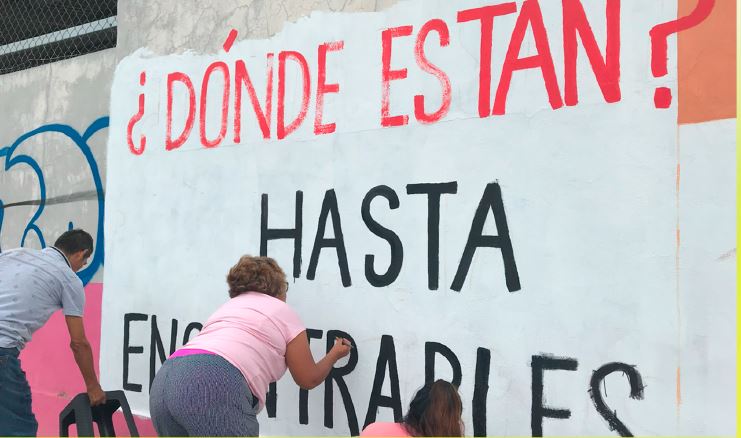 ¿DÓNDE ESTAN?
HASTA
ENCONTRARLES